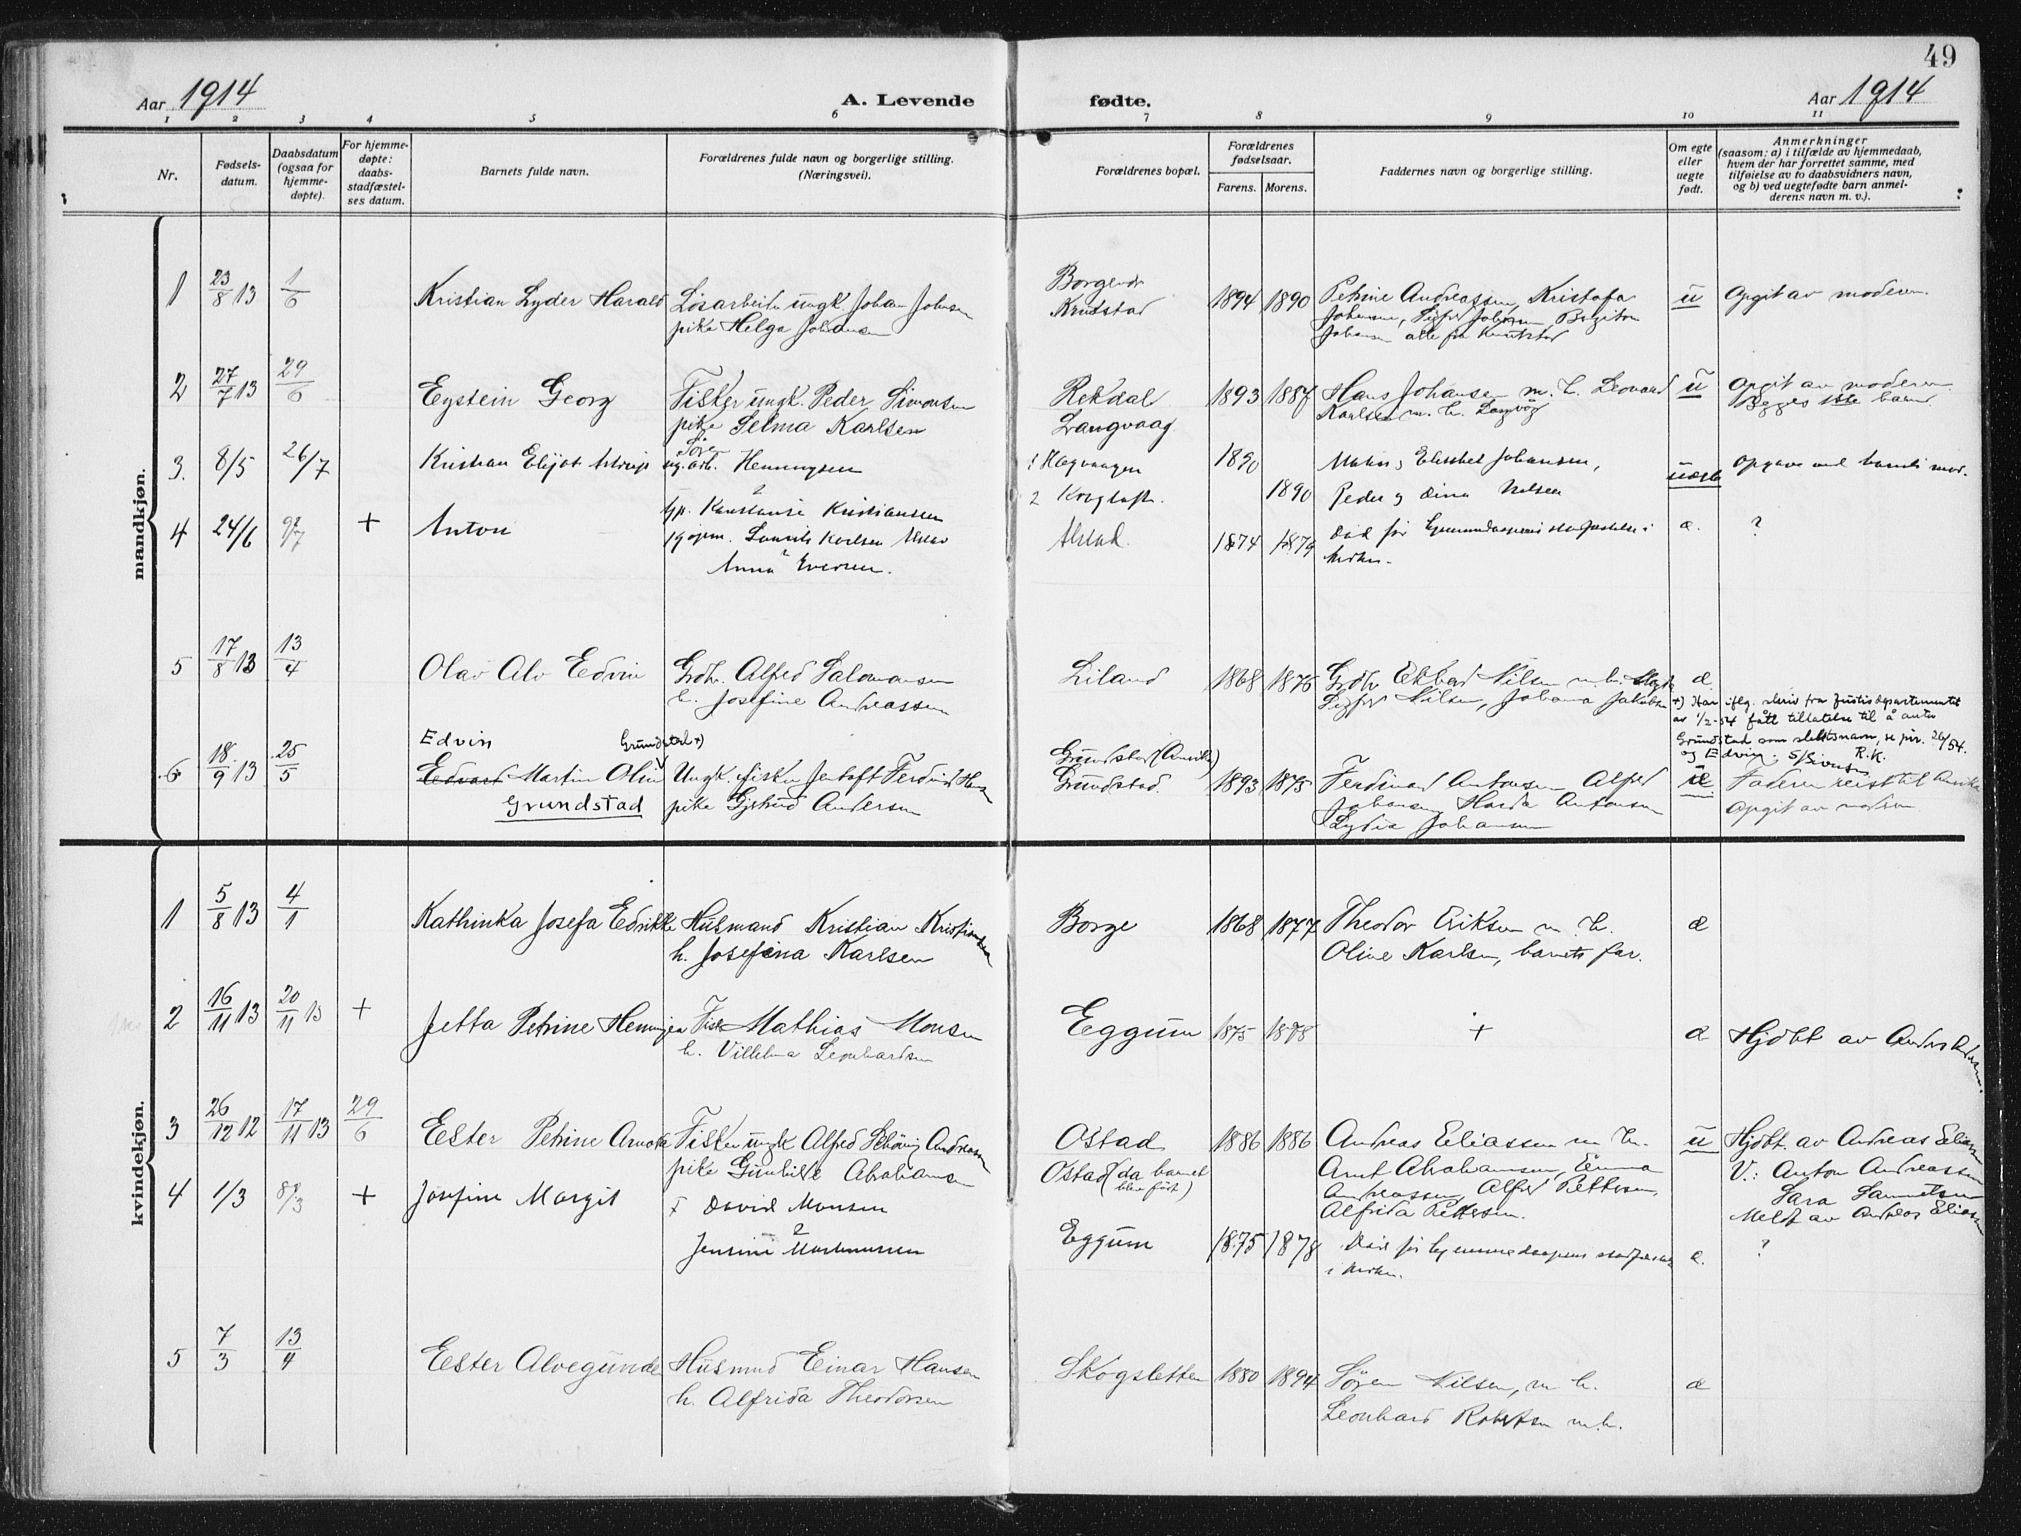 49
Aar 1914
A. Levende fødte.
Aar 1914
1 2 3 4 5 6 7 8 9 10 11
Nr.
Fødsels-
datum.
Daabsdatum
(ogsaa for
hjemme-
døpte).
For hjemme-
døpte:
daabs-
stadfæstel-
ses datum.
Barnets fulde navn.
Forældrenes fulde navn og borgerlige stilling.
(Næringsvei).
Forældrenes bopæl.
Forældrenes
fødselsaar.
Farens. Morens.
Faddernes navn og borgerlige stilling.
Om egte
eller
uegte
født.
Anmerkninger
(saasom: a) i tilfælde av hjemmedaab,
hvem der har forrettet samme, med
tilføielse av to daabsvidners navn,
og b) ved uegtefødte barn anmel-
derens navn m. v.).
mandkjøn.
1 23/8 13 1/6 Kristian Lyder Harald Løsarbeider ungk. Johan Johnsen
pike Helga Johansen
Borgevær
Knutstad
1894 1890
Petrine Andreassen, Kristofa
Johansen, Johansen
Johansen alle fra Knutstad
u Opgit av moderen.
2 27/7 13 29/6 Eystein Georg Fisker ungk. Peder Simonsen
pike Selma Karlsen
Rekdal
Langvaag
1893 1887
Hans Johansen m. h. Leonard
Karlsen m. h. Langvåg
u Opgit av moderen
Begges 1ste barn
3. 8/5 26/7 Kristian
ug. arb. Henningsen
&
Konstanse Kristianssen
1 Hagvaagen
2
1890
1890
Johansen,
Peder og Dina Nilsen
uægte Opgave ved barnets mor.
4 24/6 9/7 + Anton
Laurits Karlsen Alstad
&
Anna Iversen.
Alstad.
1874 1879
Død før hjemmedaapens stadfæstelse i
kirken.
æ. ?
5 17/8 13 13/4 Olav Alv Edvin Grdbr. Alfred Salomonsen
h. Josefine Andreassen
Liland 1868 1876
Grdbr Ekbad Nilsen m. h.
Sigfr Nilsen, Johanna Jakobsen
æ
+) Har iflg. skriv fra Justisdepartementet
av 1/2-54 fått tillatelse til å anta
Grundstad som slektsnavn, se pir. 26/54.
og Edvin. S/Sivertsen R.K.
6 18/9 13 25/5
Edvin Grundstad +)
Edvard Martin Olin
Grundstad
Ungk. fisker Jentoft Ferdinand Hansen
pike Gjertrud Andersen
Grundstad (Amerika)
Grundstad
1893 1875
Ferdinand Antonsen Alfred
Johansen, Harda Antonsen
Lydia Johansen
u Faderen reist til Amerika
Opgit av moderen.
kvindekjøn.
1 5/8 13 4/1 Kathinka Josefa Edrikke Husmand Kristian Kristiansen
h. Josefina Karlsen
Borge 1868 1877
Theodor Eriksen m. h.
Oline Karlsen, barnets far.
æ
2 16/11 13 20/11 13 + Jetta Petrine Henninga Fisk. Mathias Monsen
h. Villelma Leonhardsen
Eggum 1875 1878 + æ Hjdbt av Anders
3 26/12 12 17/11 13 29/6 Ester Petrine Arnota Fisker ungk Alfred Schönig Andreassen
pike Gunhilde Abrahamsen
Ostad
Ostad (da barnet
blev født)
1886 1886
Andreas Eliassen m h.
Arnt Abrahamsen, Emma
Andreassen, Alfred Pettersen,
Alfrida Pettersen.
u Hjdbt. av Andreas Eliassen
V.: Anton Andreassen
Sara Samuelsen
Meldt av Andreas Eliassen
4 1/3 8/3 + Josefine Margit F David Monsen
&
Jensine Martinussen
Eggum 1875 1878
Død før hjemmedaapens stadfæstelse
i kirken.
æ. ?
5 7/3 13/4 Ester Alvegunde Husmnd Einar Hansen
h. Alfrida Theodorsen
Skogsletten 1880 1894
Søren Nilsen, m h.
Leonhard Robertsen m. h.
æ